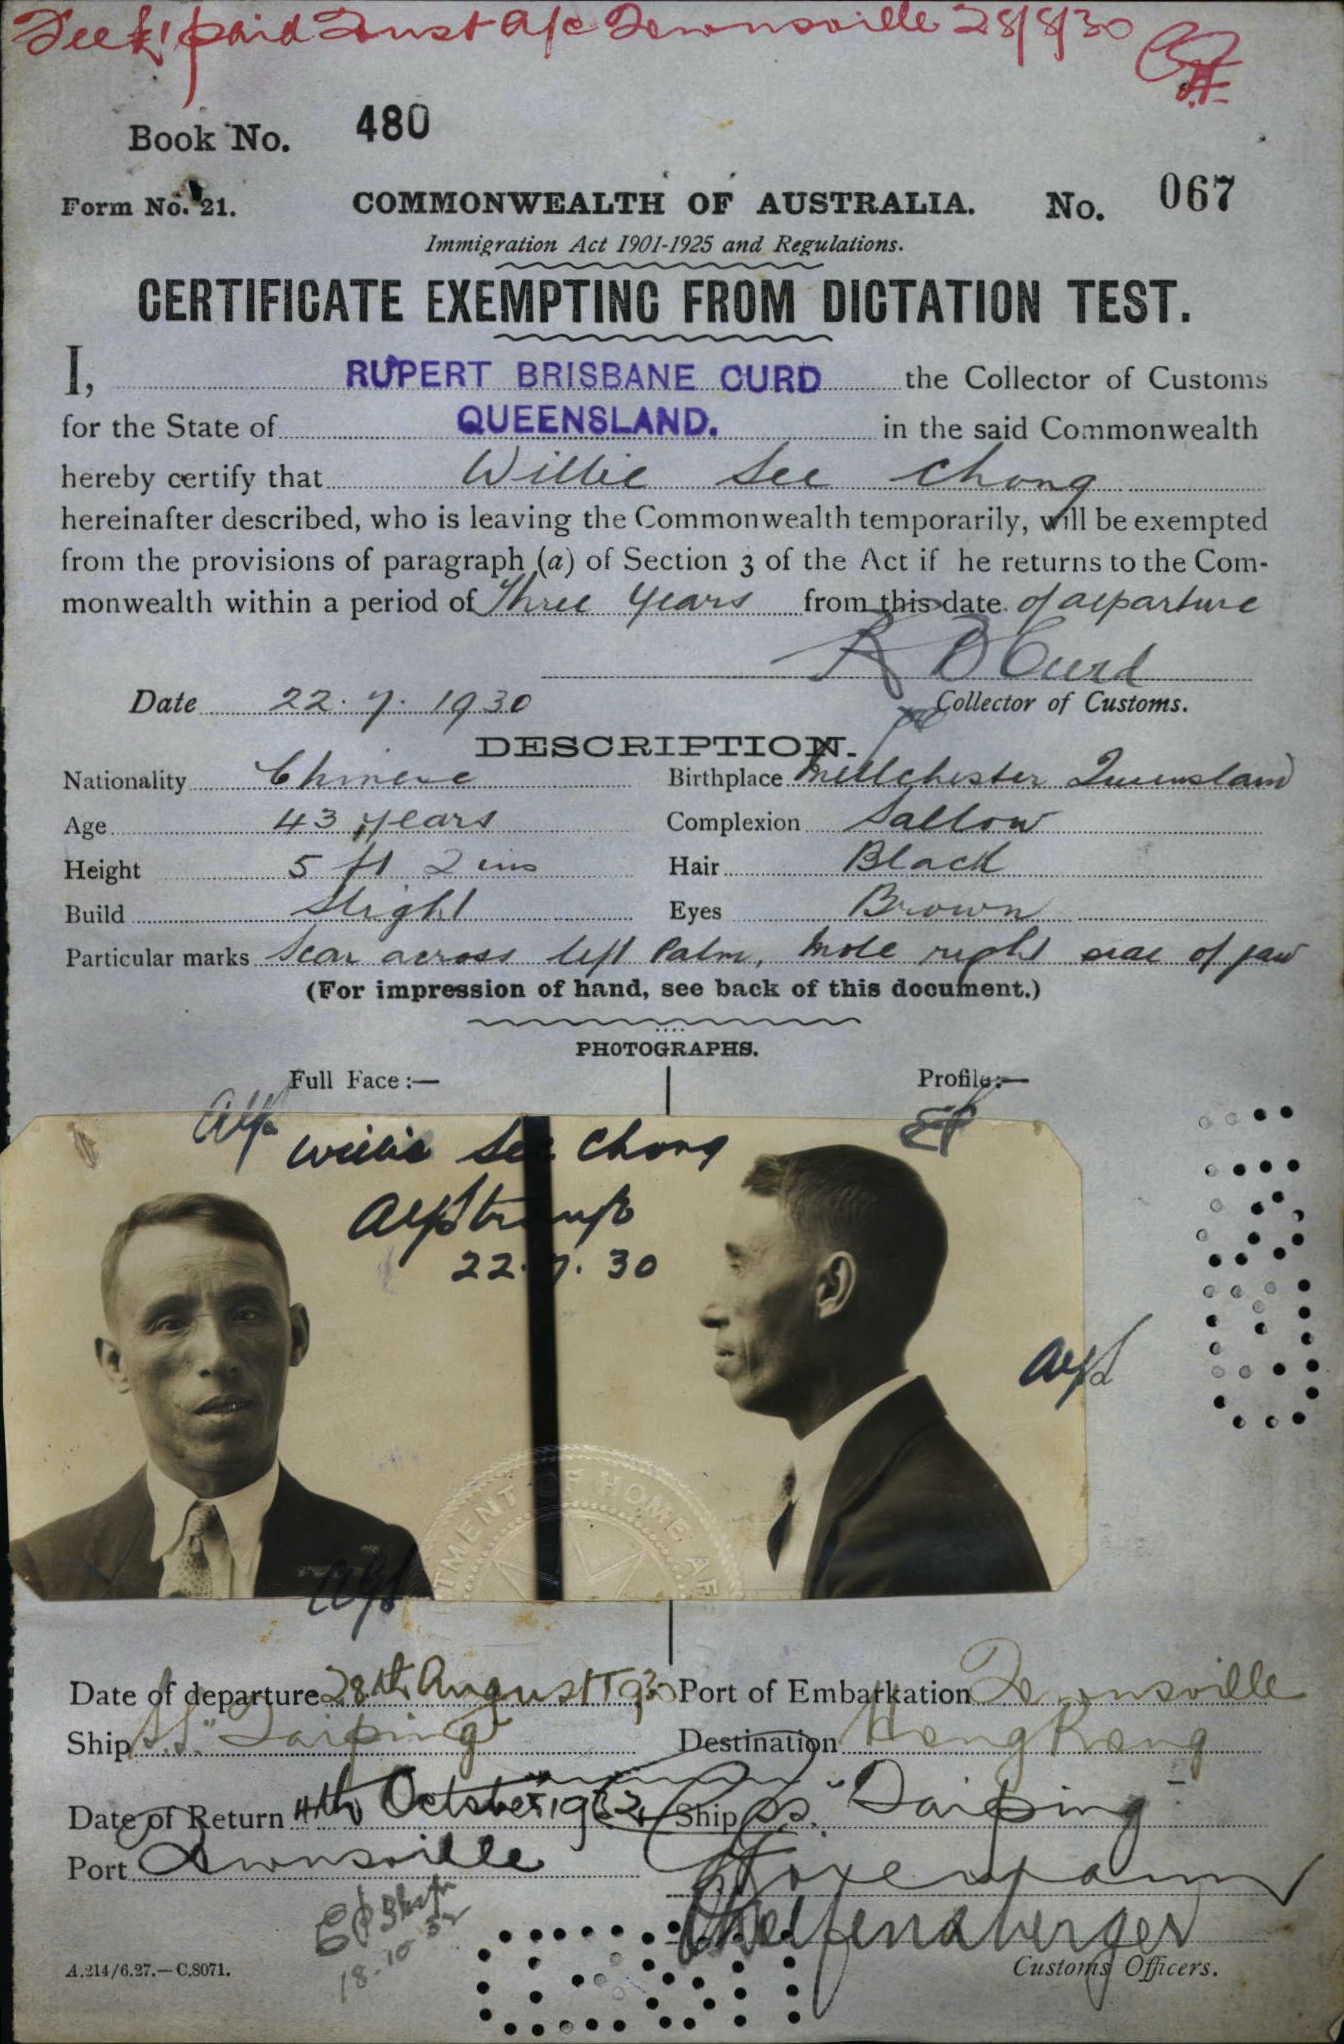 Fee £1 paid Trust a/c Townsville 28/8/30
Book No. 480
Form No. 21. COMMONWEALTH OF AUSTRALIA. No. 067
Immigration Act 1901-1925 and Regulations.
CERTIFICATE EXEMPTING FROM DICTATION TEST.
I, RUPERT BRISBANE CURD the Collector of Customs
for the State of QUEENSLAND. in the said Commonwealth
hereby certify that Willie See Chong
hereinafter described, who is leaving the Commonwealth temporarily, will be exempted
from the provisions of paragraph (a) of Section 3 of the Act if he returns to the Com-
monwealth within a period of Three Years from this date of departure
R B Curd
Date 22.7.1930 Collector of Customs.
DESCRIPTION.
Nationality Chinese Birthplace Millchester Queensland
Age 43 years Complexion Sallow
Height 5 ft 2 ins Hair Black
Build Slight Eyes Brown
Particular marks Scar across left Palm, Mole right side of jaw
(For impression of hand, see back of this document.)
PHOTOGRAPHS.
Full Face:— Profile:—
Willie See Chong
22.7.30
TMENT OF HOME AF
Date of departure 28th August 1930 Port of Embarkation Townsville
Ship S.S. "Taiping" Destination Hong Kong
Date of Return 4th October 1932 Ship S.S. "Taiping"
Port Townsville
18-10-32
A.214/6.27.—C.8071. Customs Officers.